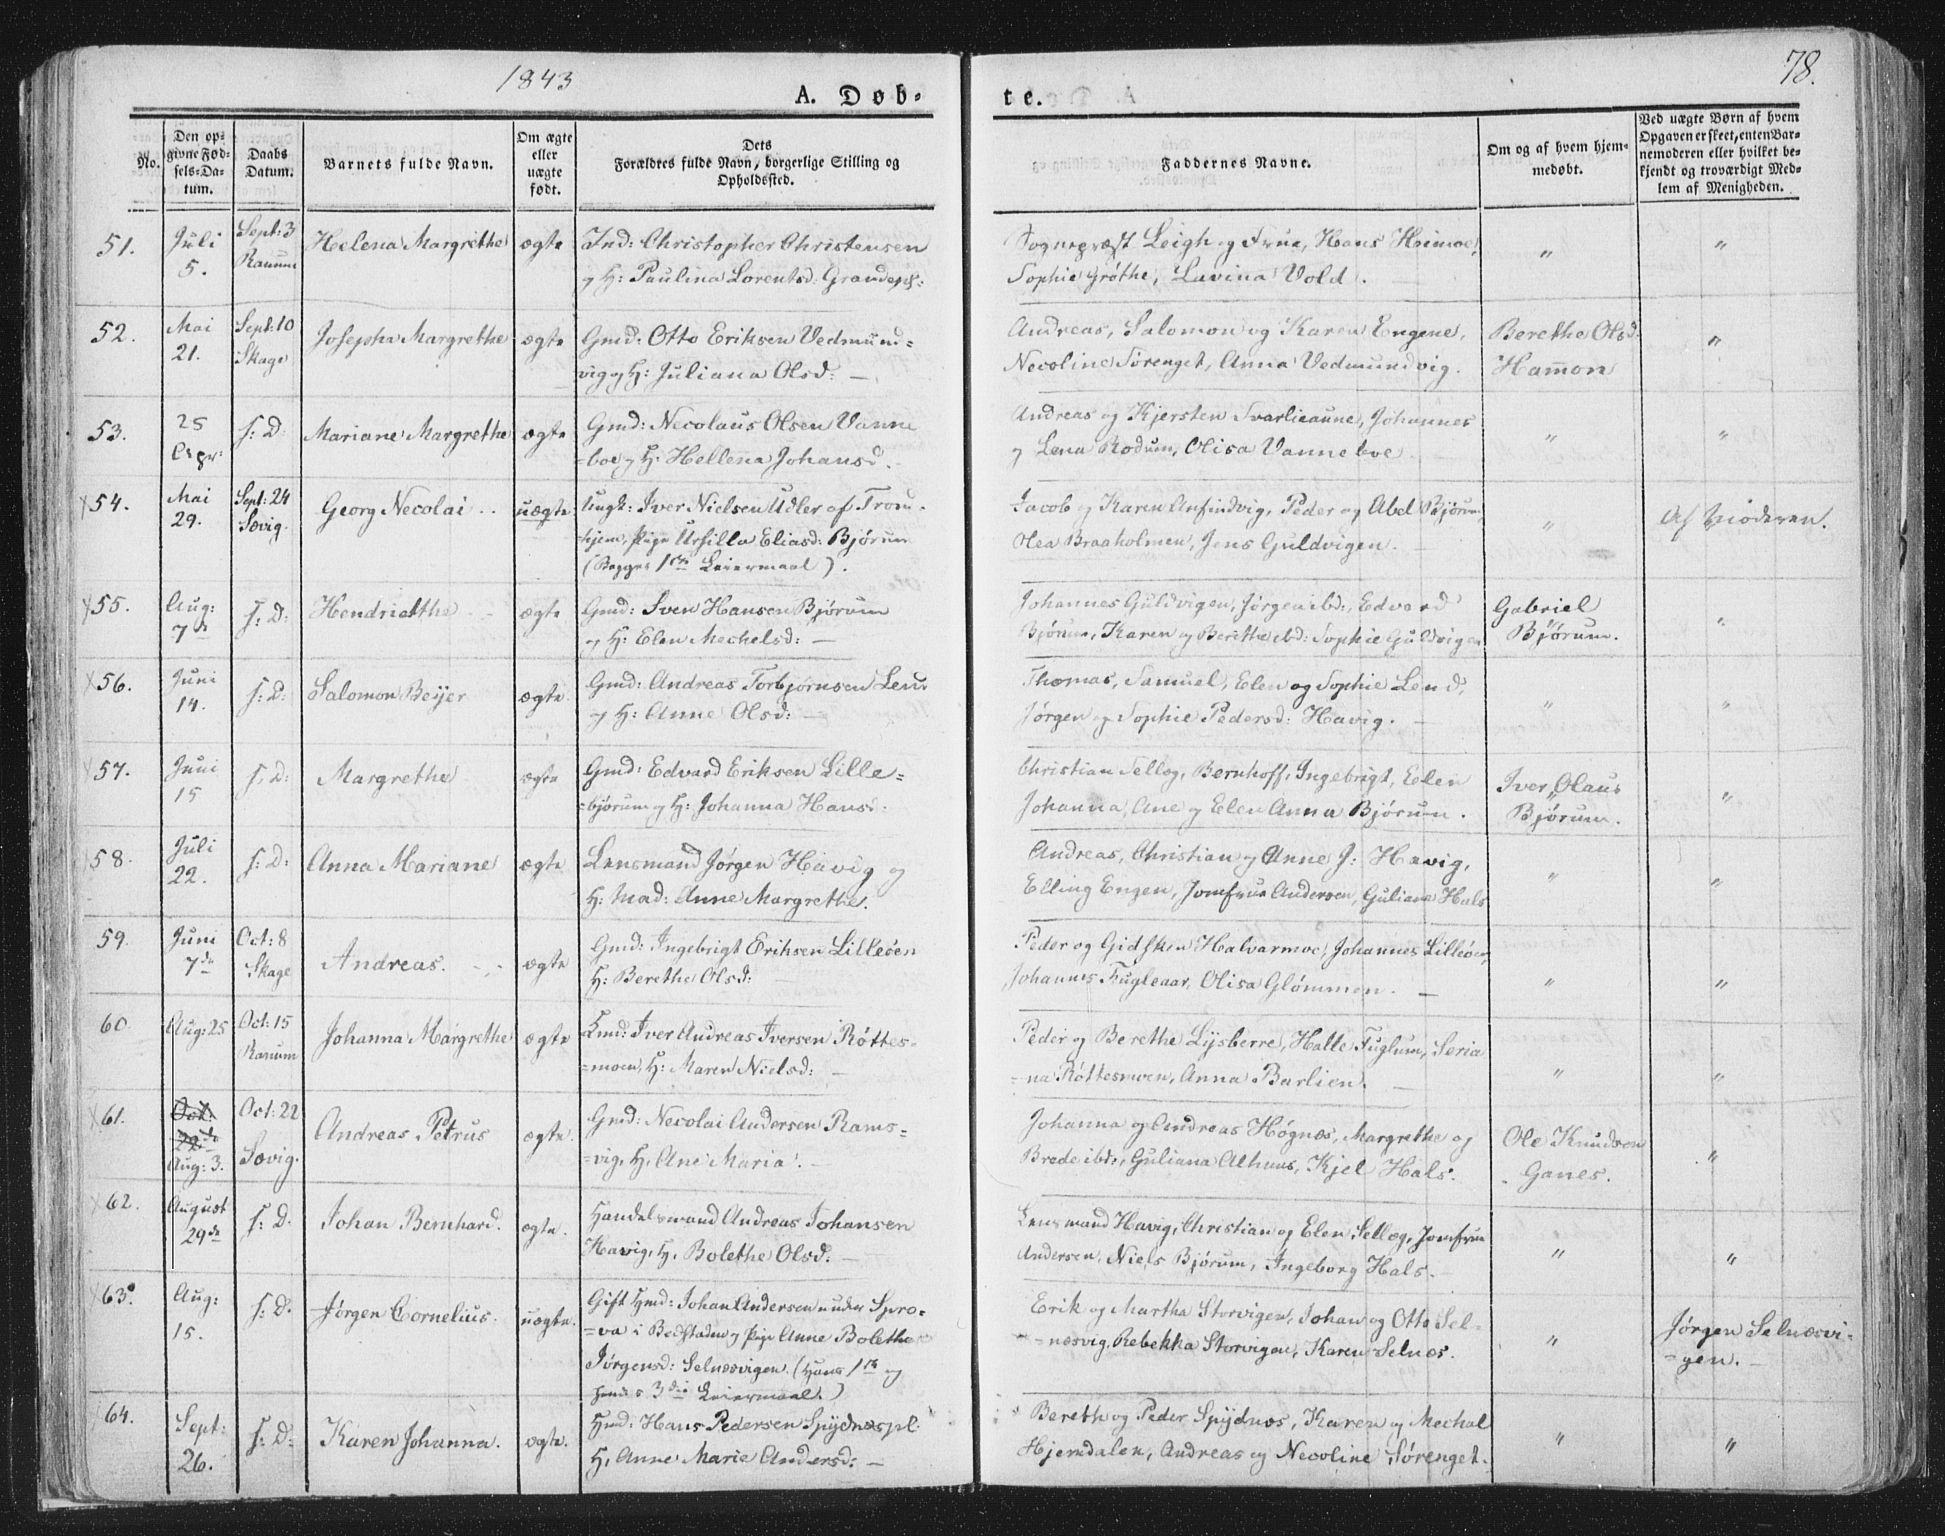 1843
78.
A. Døb-
te.
No.
Den op-
givne Fød-
sels-Da-
tum.
Daabs
Datum.
Barnets fulde Navn.
Om ægte
eller
uægte
født.
Dets
Forældres fulde Navn, borgerlige Stilling og
Opholdssted.
Faddernes Navne.
Om og af hvem hjem-
medøbt.
Ved uægte Børn af hvem
Opgaven er skeet, enten Bar-
nemoderen eller hvilket be-
kjendt og troværdigt Med-
lem af Menigheden.
51.
Juli
5.
Sept: 3
Ranum
Helena Margrethe
ægte
Ind: Christopher Christensen
og H: Paulina Lorentsd:
Sognepræst Leigh og Frue, Hans Heimoe,
Sophie Grøthe, Lavina Vold.
"
"
52.
Mai
21.
Sept: 10
Skage
Josepha Margrethe
ægte
Gmd: Otto Eriksen Vedmund=
vig og H: Juliana Olsd: —
Andreas, Salomon og Karen Engene,
Necoline Sørenget, Anna Vedmundvig.
Berethe Olsd:
Hammon
"
53.
25
Apr:
s: D:
Mariane Margrethe
ægte
Gmd: Necolaus Olsen Vanne
=boe og H: Hellena Johansd.
Andreas og Kjersten Svarlieaune, Johannes
og Lena Rodum, Olisa Vanneboe
"
"
54.
Mai
29.
Sept: 24
Sævig.
Georg Necolai
uægte
Ungk: Iver Nielsen Udler af Tron-
hjem, Pige Ursilla Eliasd: Bjørum
(Begges 1ste Leiermaal).
Jacob og Karen Anfindvig, Peder og Abel Bjørum,
Olea Braaholmen, Jens Guldvigen. —
"
Af Moderen.
55.
Aug:
7de
s: D:
Hendriethe
ægte
Gmd: Sven Hansen Bjørum
og H: Elen Mechelsd: —
Johannes Guldvigen, Jørgen ibd:, Edvard
Bjørum, Karen og Berethe ibd: Sophie Guldvigen
Gabriel
Bjørum.
"
56.
Juni
14.
s: D:
Salomon Beijer
ægte
Gmd: Andreas Torbjørnsen Lein
og H: Anne Olsd: —
Thomas, Samuel, Elen og Sophie Lend,
Jørgen og Sophie Pedersd: Havig. —
"
"
57.
Juni
15
s: D:
Margrethe
ægte
Gmd: Edvard Eriksen Lille=
=bjørum og H: Johanna Hansd:
Christian Sellæg, Bernhoff, Ingebrigt, Elen
Johanna, Ane og Elen Anna Bjørum.
Iver Olaus
Bjørum.
"
58.
Juli
22.
s: D:
Anna Mariane
ægte
Lensmand Jørgen Havig og
H: Mad: Anne Margrethe.
Andreas, Christian og Anne J: Havig,
Elling Engen, Jomfrue Andersen, Guliana Hals
"
"
59.
Juni
7de
Oct: 8
Skage
Andreas.
ægte
Gmd: Ingebrigt Eriksen Lilleøen
H: Berethe Olsd:
Peder og Gidsken Halvarmoe, Johannes Lilleøen,
Johannes Fugleaar, Olisa Glømmen. —
"
"
60.
Aug: 25
Oct: 15
Ranum
Johanna Margrethe
ægte
Gmd: Iver Andreas Iversen Røttes=
=moen, H: Maren Nielsd: —
Peder og Berethe Lysberre, Halle Fuglum, Seria
=na Røttesmoen, Anna Barlien. —
"
"
61.
Oct.
22de
Aug: 3.
Oct: 22
Sævig.
Andreas Petrus
ægte.
Gmd: Necolai Andersen Rams=
=vig, H, Ane Maria. —
Johanna og Andreas Høgnæs, Margrethe og
Brede ibd:, Guliana Alhuus, Kjel Hals.
Ole Knudsen
Ganes.
"
62.
August
29de
s: D.
Johan Bernhard.
ægte.
Handelsmand Andreas Johansen
Havig, H, Bolethe Olsd: —
Lensmand Havig, Christian og Elen Sellæg, Jomfrue
Andersen, Niels Bjørum, Ingeborg Hals. —
"
"
63.
Aug:
15.
s: D.
Jørgen Cornelius.
uægte.
Gift Hmd: Johan Andersen under Spro=
=va i Bedstaden og Pige Anne Bolethe
Jørgensd: Selnæsvigen. (Hans 1ste og
hendes 3die Leiermaal.)
Erik og Martha Storvigen, Johan og Otto Sel=
=næsvig, Rebekka Storvigen, Karen Selnæs.
"
Jørgen Selnæsvi=
=gen. —
64.
Sept:
26.
s: D:
Karen Johanna.
ægte.
Hmd: Hans Pedersen Spydnæspl.
H, Anne Marie Andersd: —
Bereth og Peder Spydnæs, Karen og Mechal
Hjemdalen, Andreas og Necoline Sørenget.
"
"